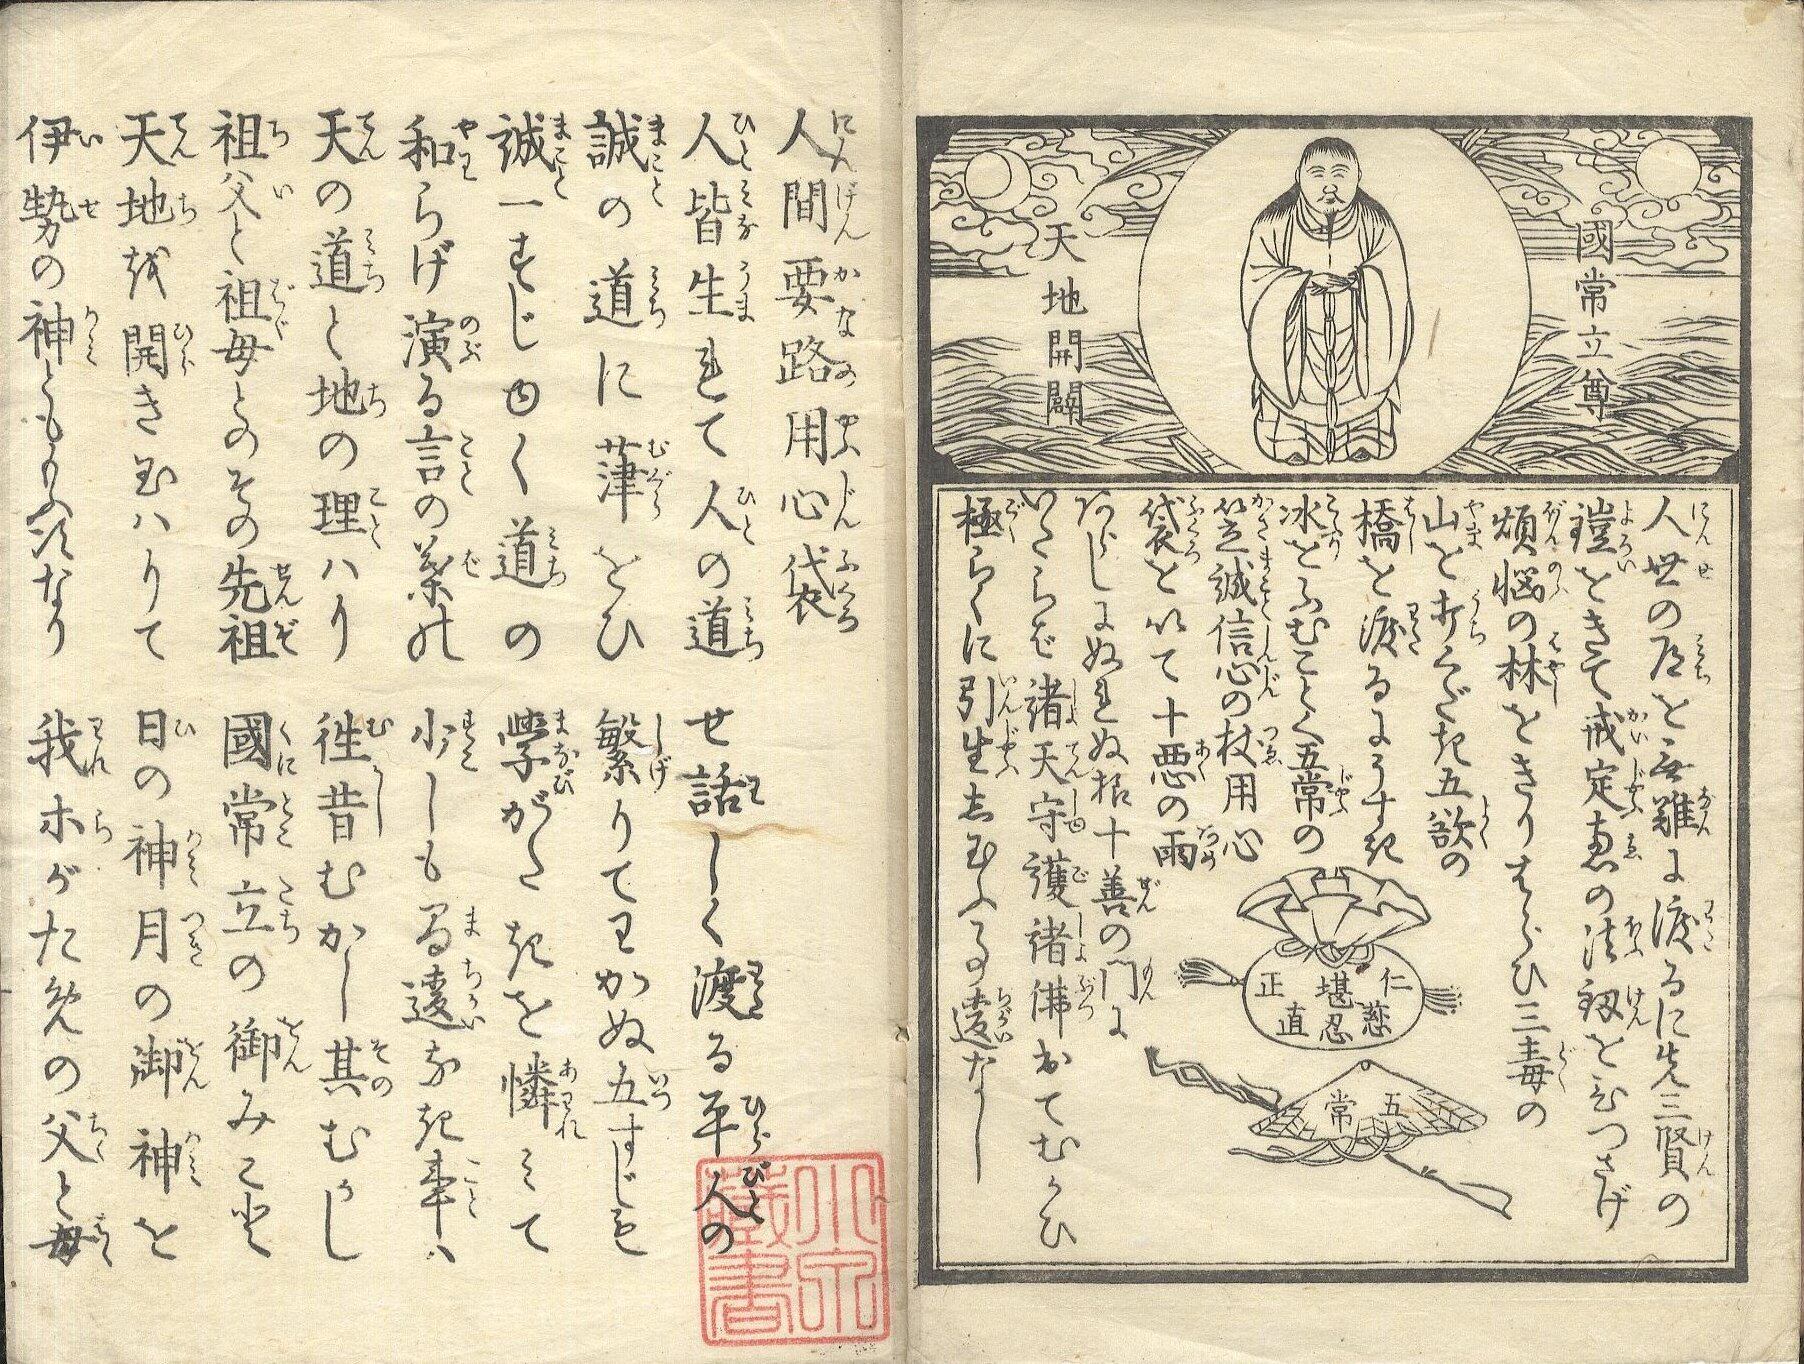 國常立尊
天地開闢
人世の道を無難に渡るに先三賢の
鎧をきて戒定恵の法釼をひつさげ
煩悩の林をきりはらひ三毒の
山を打くだき五欲の
橋を渡るにうすき
氷をふむことく五常の
笠誠信心の杖用心
袋を以て十悪の雨
あらしにぬれぬ様十善の門に
いたらば諸天守護諸佛おてむかひ
極らくに引生し玉ふ事違なし
仁慈
堪忍
正直
五常
人間要路用心袋
人皆生れて人の道 せ話しく渡る平人の
誠の道に葎をひ 繁りてわかぬ五すじも
誠一すじゆく道の 學がたきを憐みて
和らげ演る言の葉の 少しも間違なき事ハ
天の道と地の理ハり 徃昔むかし其むかし
祖父と祖母とのその先祖 國常立の御みこと
天地を開き玉ハりて 日の神月の御神を
伊勢の神ともいふなり 我ホがための父と母
小宗藏書